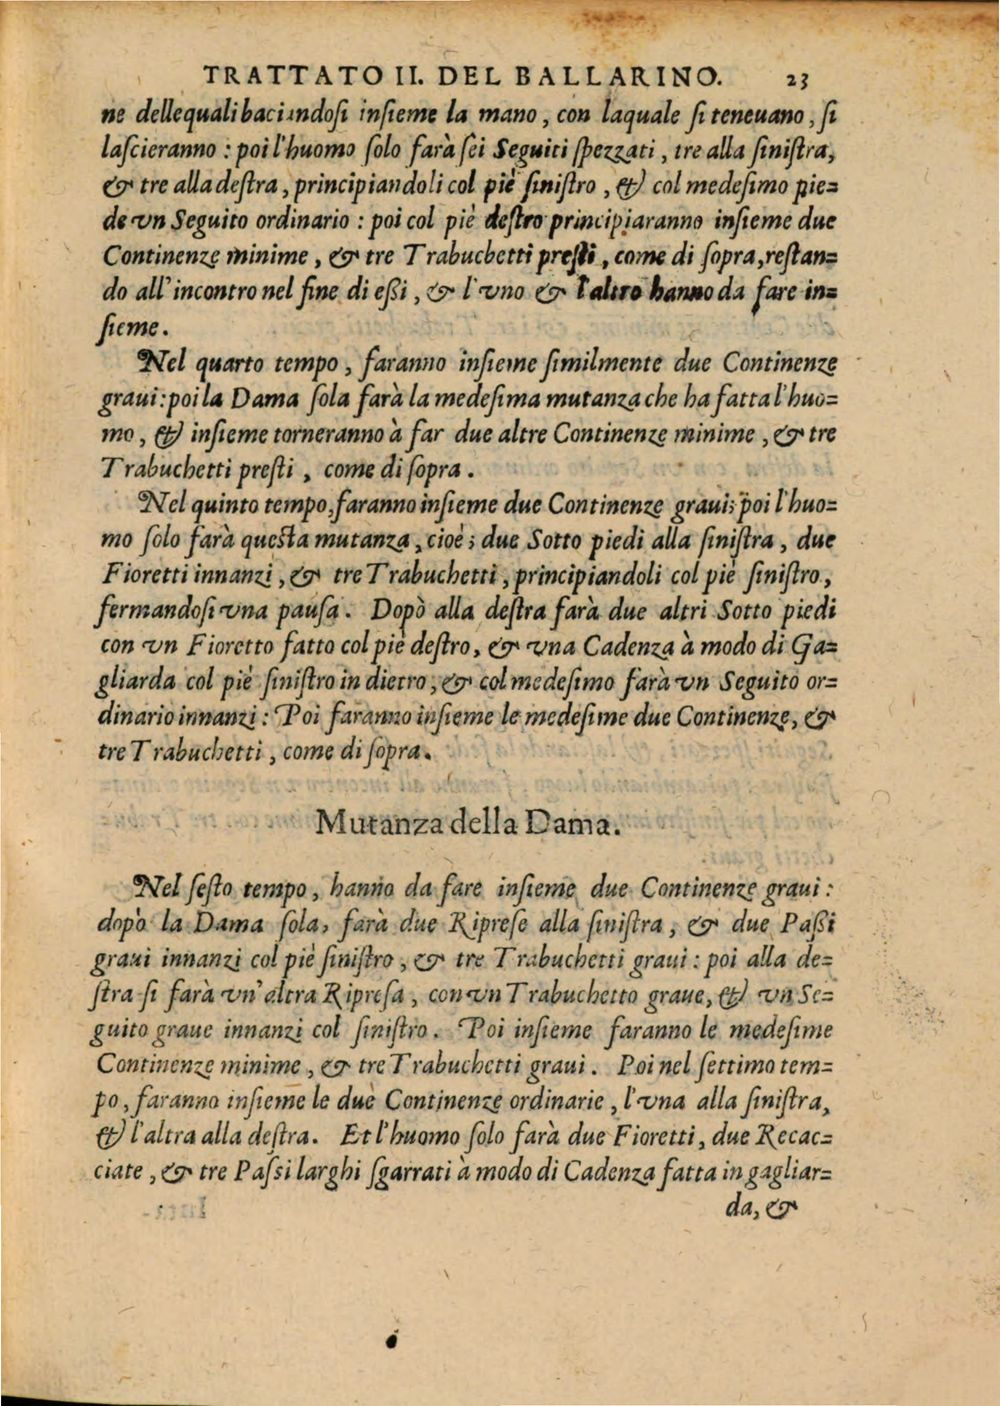 TRATTATO II. DEL BALLARINO. 23
ne delle quali baciandoſi inſieme la mano, con laquale ſi teneuano, ſi
laſcieranno: poi l'huomo ſolo farà ſei Seguiti ſpezzati, tre alla ſiniſtra,
& tre alla deſtra, principiandoli col piè ſiniſtro, & col medeſimo pie=
de vn Seguito ordinario: poi col piè deſtro principiaranno inſieme due
Continenze minime, & tre Trabuchetti preſti, come di ſopra, reſtan=
do all'incontro nel fine di eßi, & l'vno & l'altro hanno da fare in=
ſieme.
Nel quarto tempo, faranno inſieme ſimilmente due Continenze
graui: poi la Dama ſola farà la medeſima mutanza che ha fatta l'huo=
mo, & inſieme torneranno à far due altre Continenze minime, & tre
Trabuchetti preſti, come di ſopra.
Nel quinto tempo, faranno inſieme due Continenze graui; poi l'huo=
mo ſolo farà queſta mutanza, cioè; due Sotto piedi alla ſiniſtra, due
Fioretti innanzi, & tre Trabuchetti, principiandoli col piè ſiniſtro,
fermandoſi vna pauſa. Dopò alla deſtra farà due altri Sotto piedi
con vn Fioretto fatto col piè deſtro, & vna Cadenza à modo di Ga=
gliarda col piè ſiniſtro in dietro, & col medeſimo farà vn Seguito or=
dinario innanzi: Poi faranno inſieme le medeſime due Continenze, &
tre Trabuchetti, come di ſopra.
Mutanza della Dama.
Nel ſeſto tempo, hanno da fare inſieme due Continenze graui:
dopò la Dama ſola, farà due Ripreſe alla ſiniſtra, & due Paßi
graui innanzi col piè ſiniſtro, & tre Trabuchetti graui: poi alla de=
ſtra ſi farà vn'altra Ripreſa, con vn Trabuchetto graue, & vn Se=
guito graue innanzi col ſiniſtro. Poi inſieme faranno le medeſime
Continenze minime, & tre Trabuchetti graui. Poi nel ſettimo tem=
po, faranno inſieme le due Continenze ordinarie, l'vna alla ſiniſtra,
& l'altra alla deſtra. Et l'huomo ſolo farà due Fioretti, due Recac=
ciate, & tre Paſsi larghi ſgarrati à modo di Cadenza fatta in gagliar=
da, &